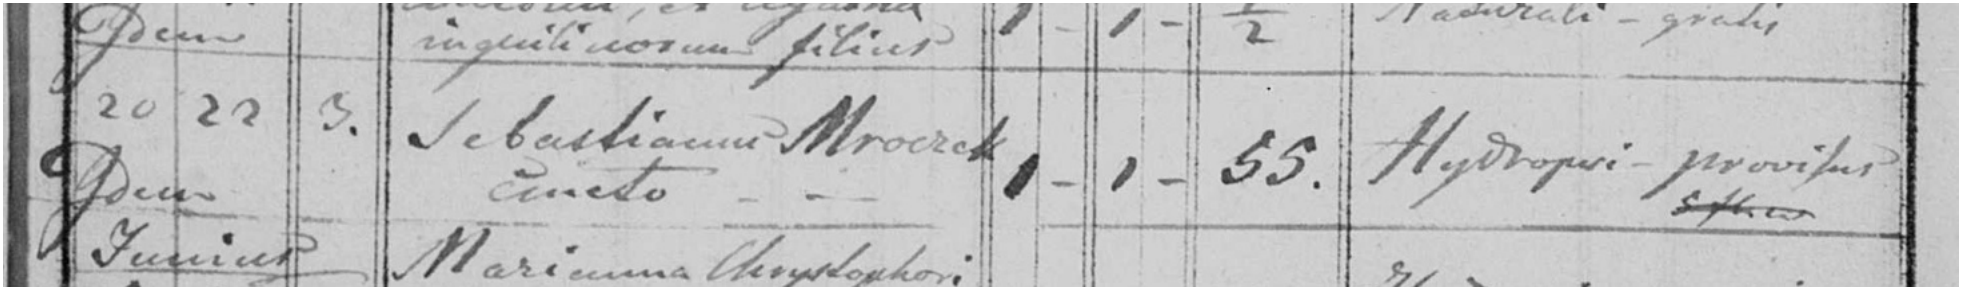 Idem inquilinorum filius 1 - 1 - 1/2 Naturali - gratis
20 22 3. Sebastianus Mroczek
Idem Cmeto - - 1 - 1 - 55. Hydropsi - provisus
Junius Marianna Chrystophori